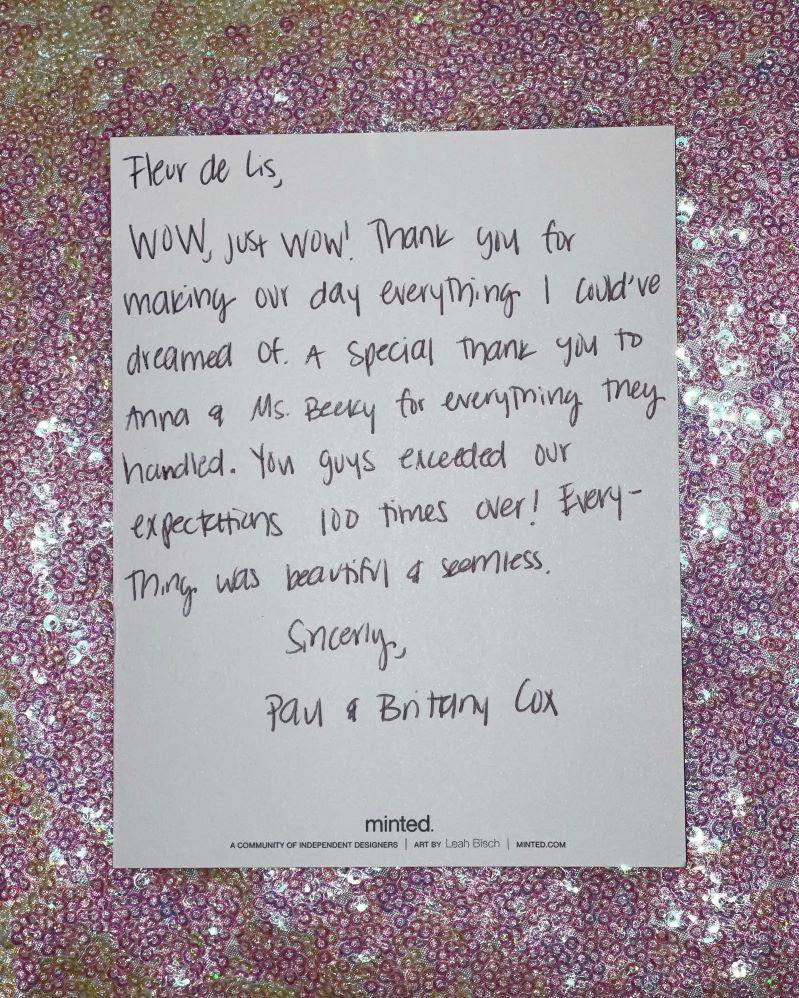 Fleur de Lis,
WOW, just WOW! Thank you for
making our day everything I could've
dreamed of. A special thank you to
Anna & Ms. Becky for everything they
handled. You guys exceeded our
expectations 100 times over! Every-
thing was beautiful & seemless.
Sincerly,
Paul & Brittany Cox
minted.
A COMMUNITY OF INDEPENDENT DESIGNERS | ART BY Leah Bisch | MINTED.COM